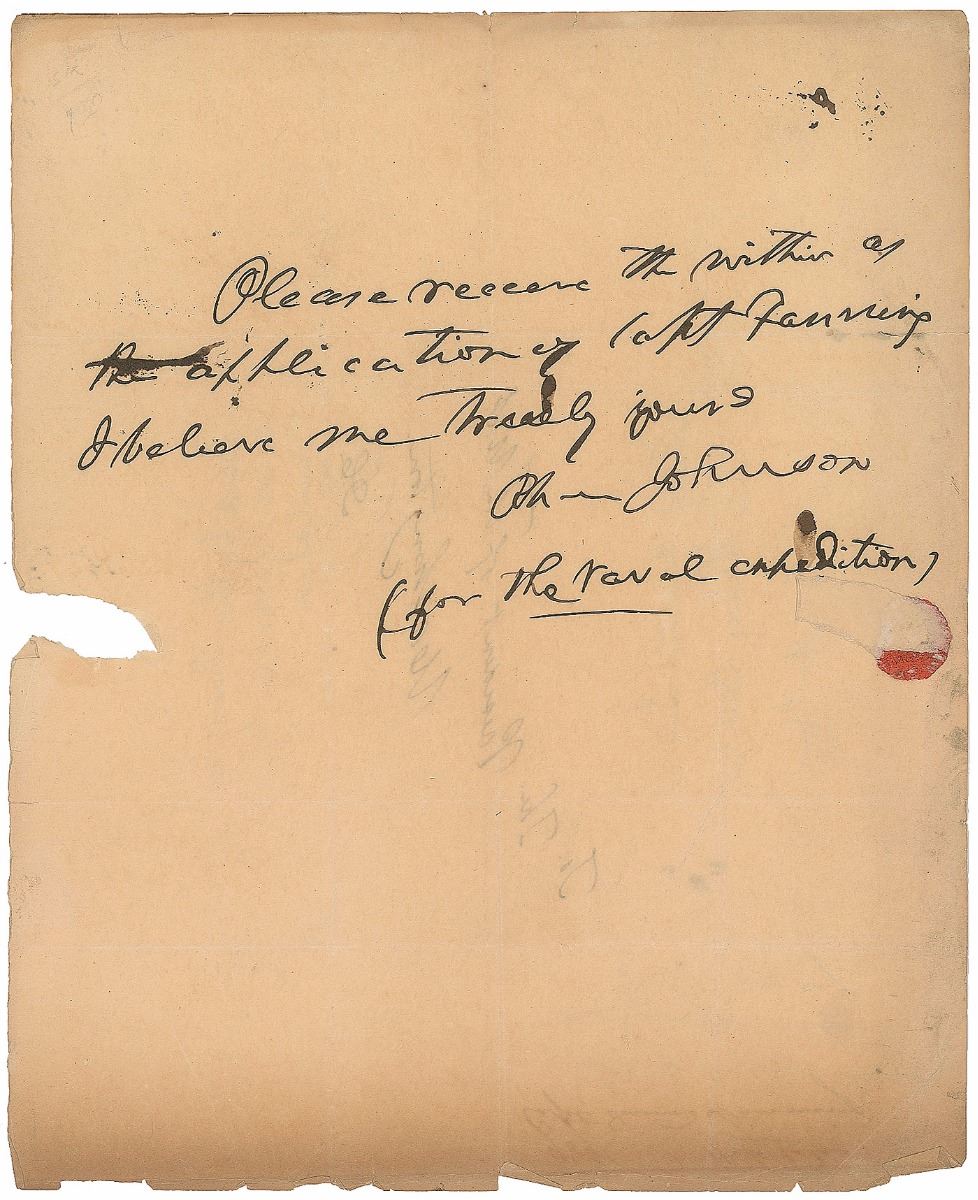 Please receive the within as
the application of Capt Fanning
& believe me truely yours
Rh m Johnson
(for the naval expedition)